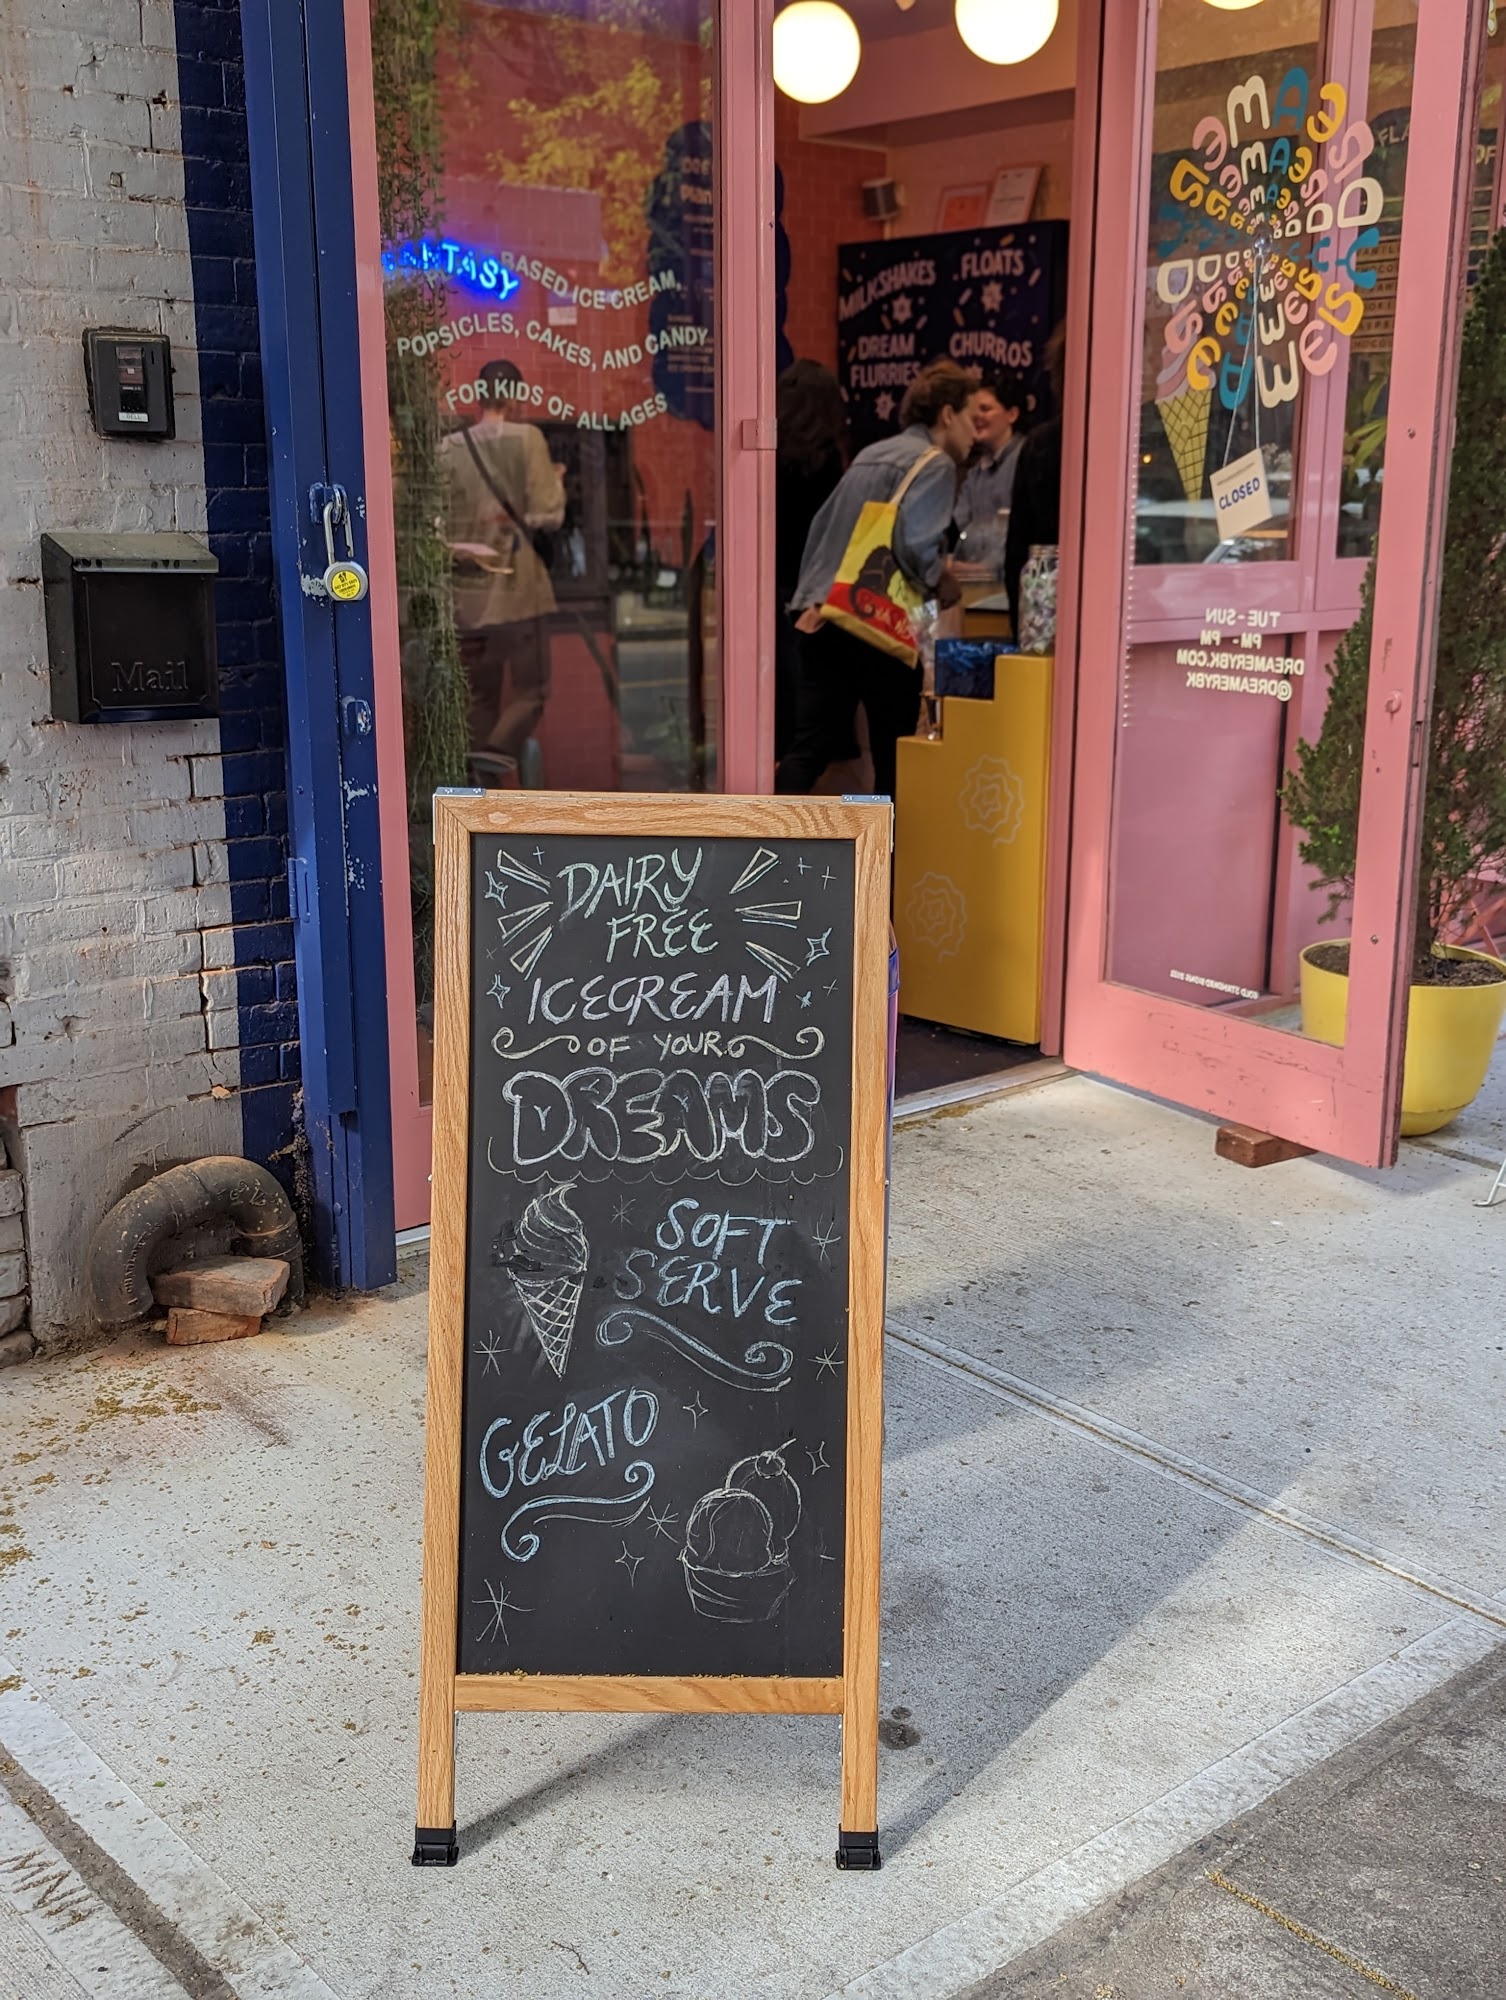 TASY
BASED ICE CREAM,
POPSICLES, CAKES, AND CANDY
FOR KIDS OF ALL AGES
MILKSHAKES
FLOATS
DREAM
FLURRIES
CHURROS
DREAMERY
CLOSED
TUE-SUN
PM - PM
DREAMERYBK.COM
@DREAMERYBK
Mail
DAIRY
FREE
ICECREAM
OF YOUR
DREAMS
SOFT
SERVE
GELATO